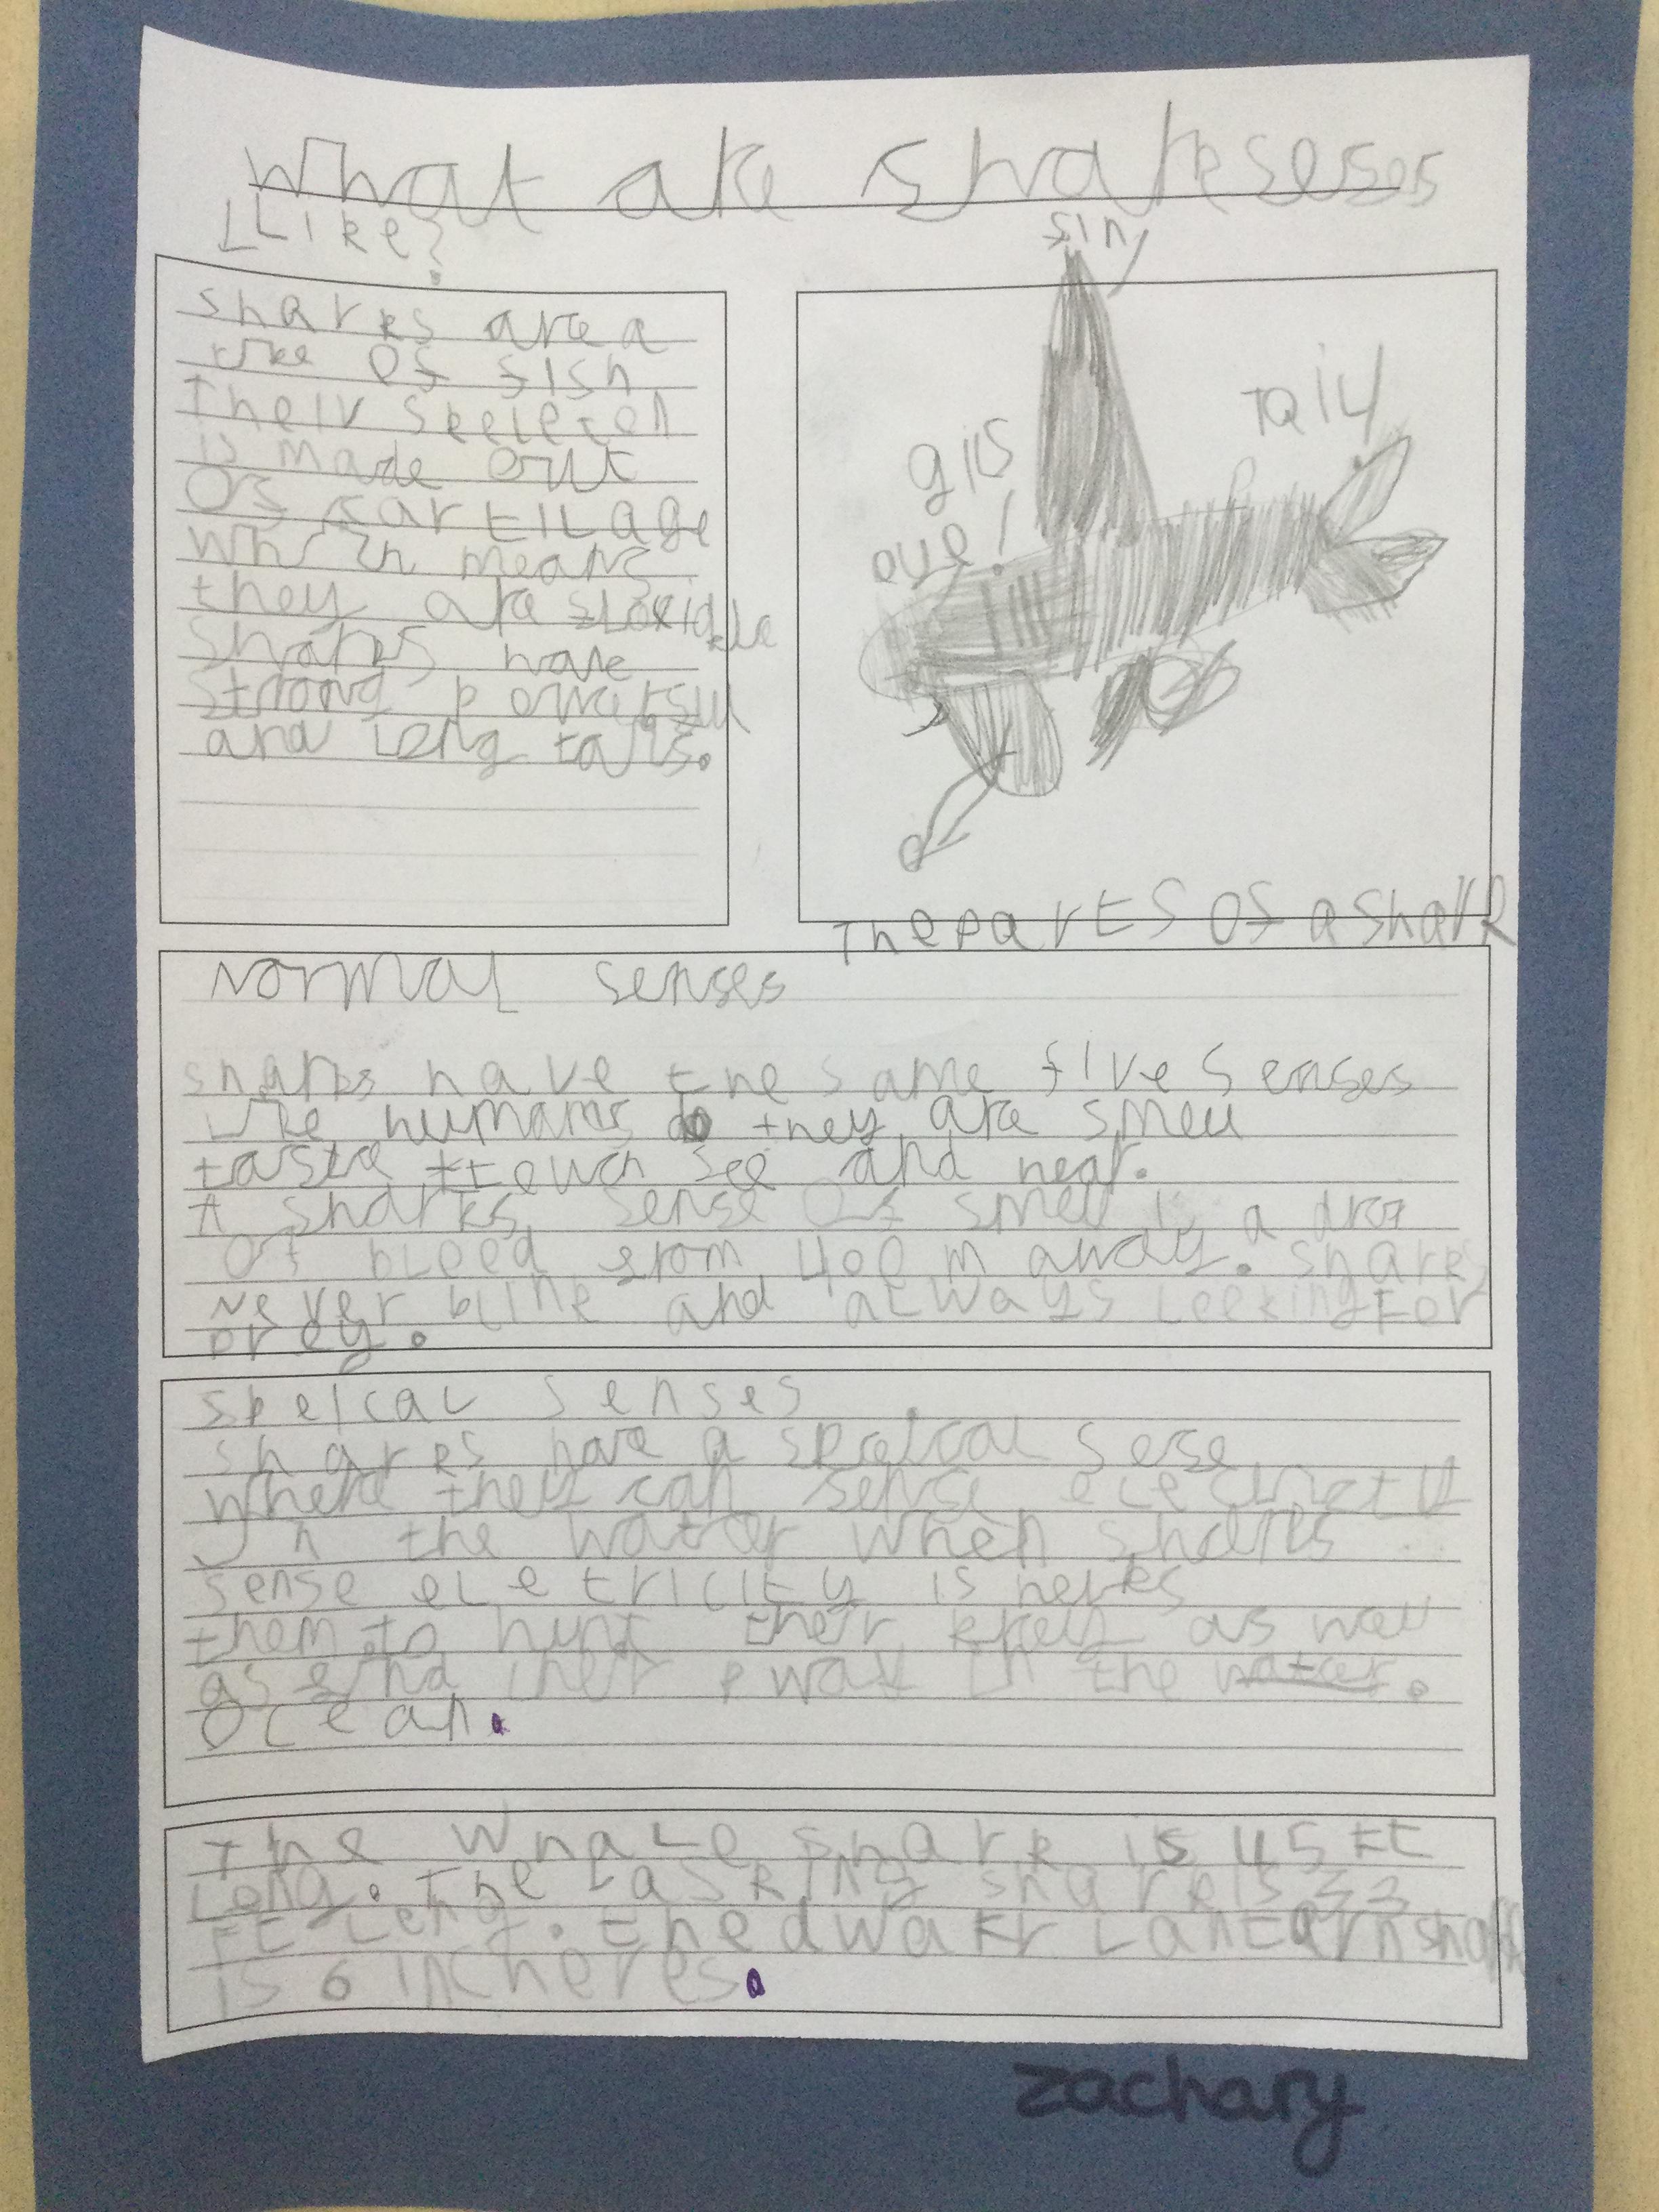 What are sharkseses
LLike?
sharks are a
like of fish
Their skeleton
is made out
of cartilage
which means
they are
sharks have
strong powerful
and long tails.
fin
Tail
gils
eye
The parts of a shark
Normal senses
sharks have the same five senses
like humans do they are smell
taste ttouch see and hear.
A sharks sense of smell is a drop
of blood from 400 m away. sharks
never blink and always looking for
prey.
speical senses
sharks have a speical sese
where they can sense
in the water when sharks
sense eletricity is helps
them to hunt their prey as well
as find their way in the water.
ocean.
The whale shark is 45 ft
Long. The basking shark is 33
Ft Long. the dwarf Lantarn shark
is 6 incheres.
zachary